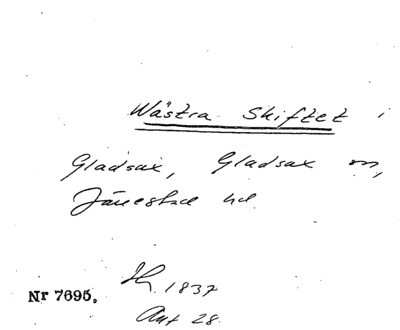 Wästra Skiftet i
Gladsax, Gladsax sn,
Järrestad hd
1837
Nr 7695.
28.